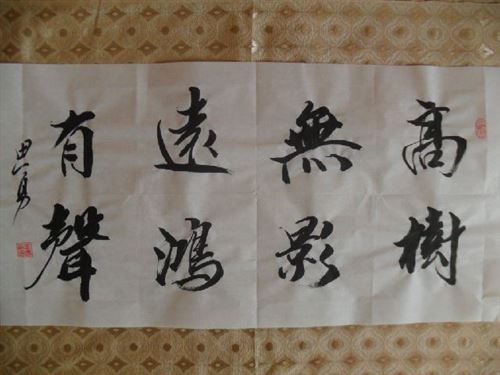 高樹
無影
遠鴻
有聲